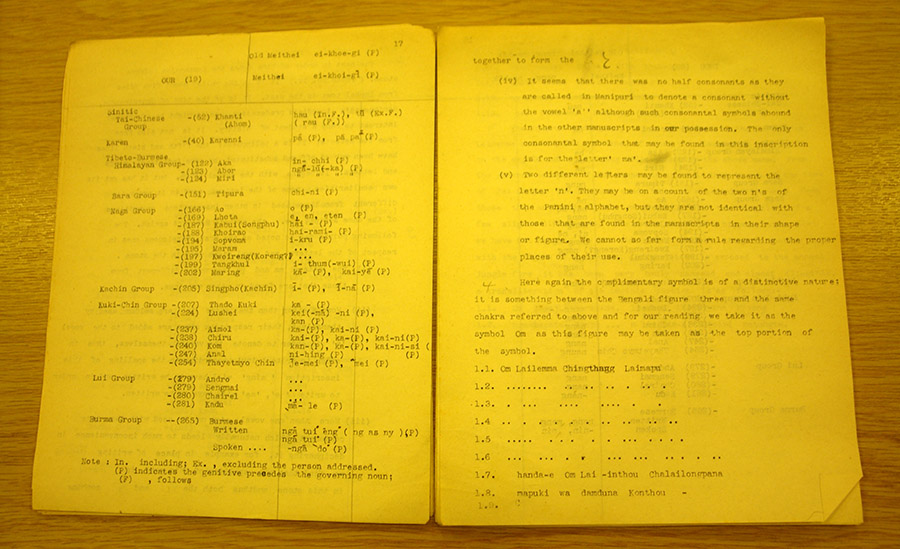 17
Old Meithei ei-khoe-gi (P)
OUR (19)
Meithei ei-khoi-gi (P)
Sinitic
Tai-Chinese -(52) Khamti hau (In.F.), tū (Ex.F.)
Group (Ahom) ( rau (F.))
Karen -(40) Karenni pā (P), pa pa (P)
Tibeto-Burmese
Himalayan Group- (122) Aka in- chhi (P)
-(123) Abor ngā-lū(-ka) (P)
-(124) Miri " " " "
Bara Group -(151) Tipura chi-ni (P)
Naga Group -(166) Ao o (P)
-(169) Lhota e, en, eten (P)
-(187) Kabui(Songphu) hai - (P)
-(188) Khoirao hai-rami- (P)
-(194) Sopvoma i-kru (P)
-(195) Maram ...
-(197) Kweireng(Koreng) ...
-(199) Tangkhul i- thum(-wui) (P)
-(202) Maring kā- (P), kai-yē (P)
Kachin Group -(205) Singpho(Kachin) ī- (P), ī-nā (P)
Kuki-Chin Group -(207) Thado Kuki ka - (P)
-(224) Lushei kei(-mā) -ni (P),
kan (P)
-(237) Aimol ka-(P), kai-ni (P)
-(238) Chiru kai-(P), ka-(P), kai-ni(P)
-(240) Kom kan-(P), ka-(P), kai-ni-si (
-(247) Anal ni-hing (P) (P)
-(254) Thayetmyo Chin je-mei (P), mei (P)
Lui Group -(279) Andro ...
-(279) Sengmai ...
-(280) Chairel ...
-(281) Kadu mā- le (P)
Burma Group --(265) Burmese
Written ngā tui eng ( ng as ny )(P)
ngā tui (P)
Spoken .... -ngā do (P)
Note : In. including; Ex. , excluding the person addressed.
(P) indicates the genitive precedes the governing noun;
(F) , follows
together to form the
(iv) It seems that there was no half consonants as they
are called in Manipuri to denote a consonant without
the vowel 'a' although such consonantal symbols abound
in the other manuscripts in our possession. The only
consonantal symbol that may be found in this inscription
is for the letter' ma'.
(v) Two different letters may be found to represent the
letter 'N'. They may be on account of the two n's of
the Panini alphabet, but they are not identical with
those that are found in the manuscripts in their shape
or figure. We cannot so far form a rule regarding the proper
places of their use.
4 Here again the complimentary symbol is of a distinctive nature:
it is something between the Bengali figure three and the same
chakra referred to above and for our reading we take it as the
symbol Om as this figure may be taken as the top portion of
the symbol.
1.1. Om Lailemma Chingthang Laimapu
1.2. ........ . .. .. . .. .
1.3. . ... .... ..... ...
1.4 .. . ... .. ... ... . ..
1.5 ..... ... .. . ... ..
1.6 ... .. . ... ... .. ....
1.7. handa-e Om Lai -inthou Chalailongpana
1.8. mapuki wa damduna Konthou -
1.9.